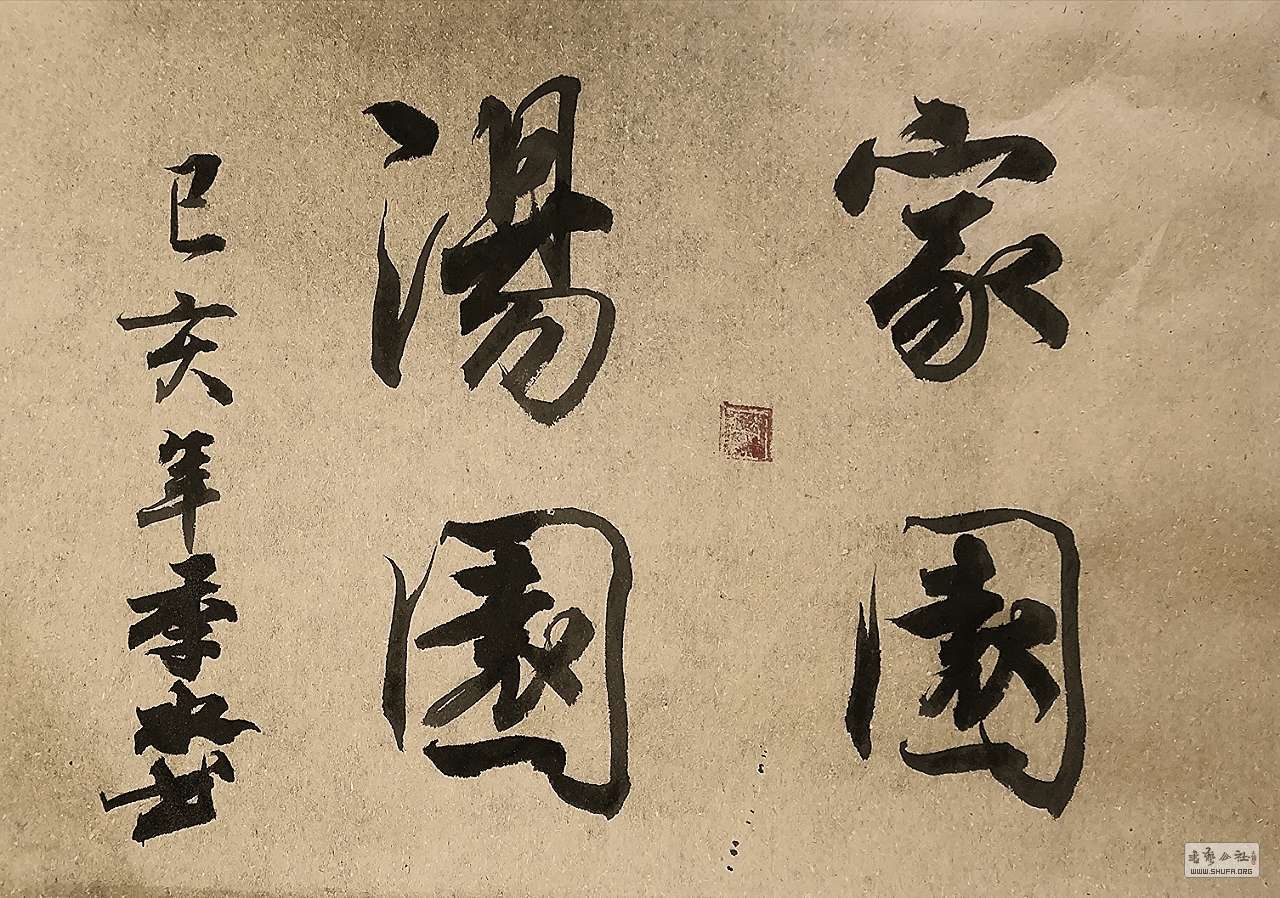 家園
湯園
己亥年季
書藝公社
WWW.SHUFA.ORG